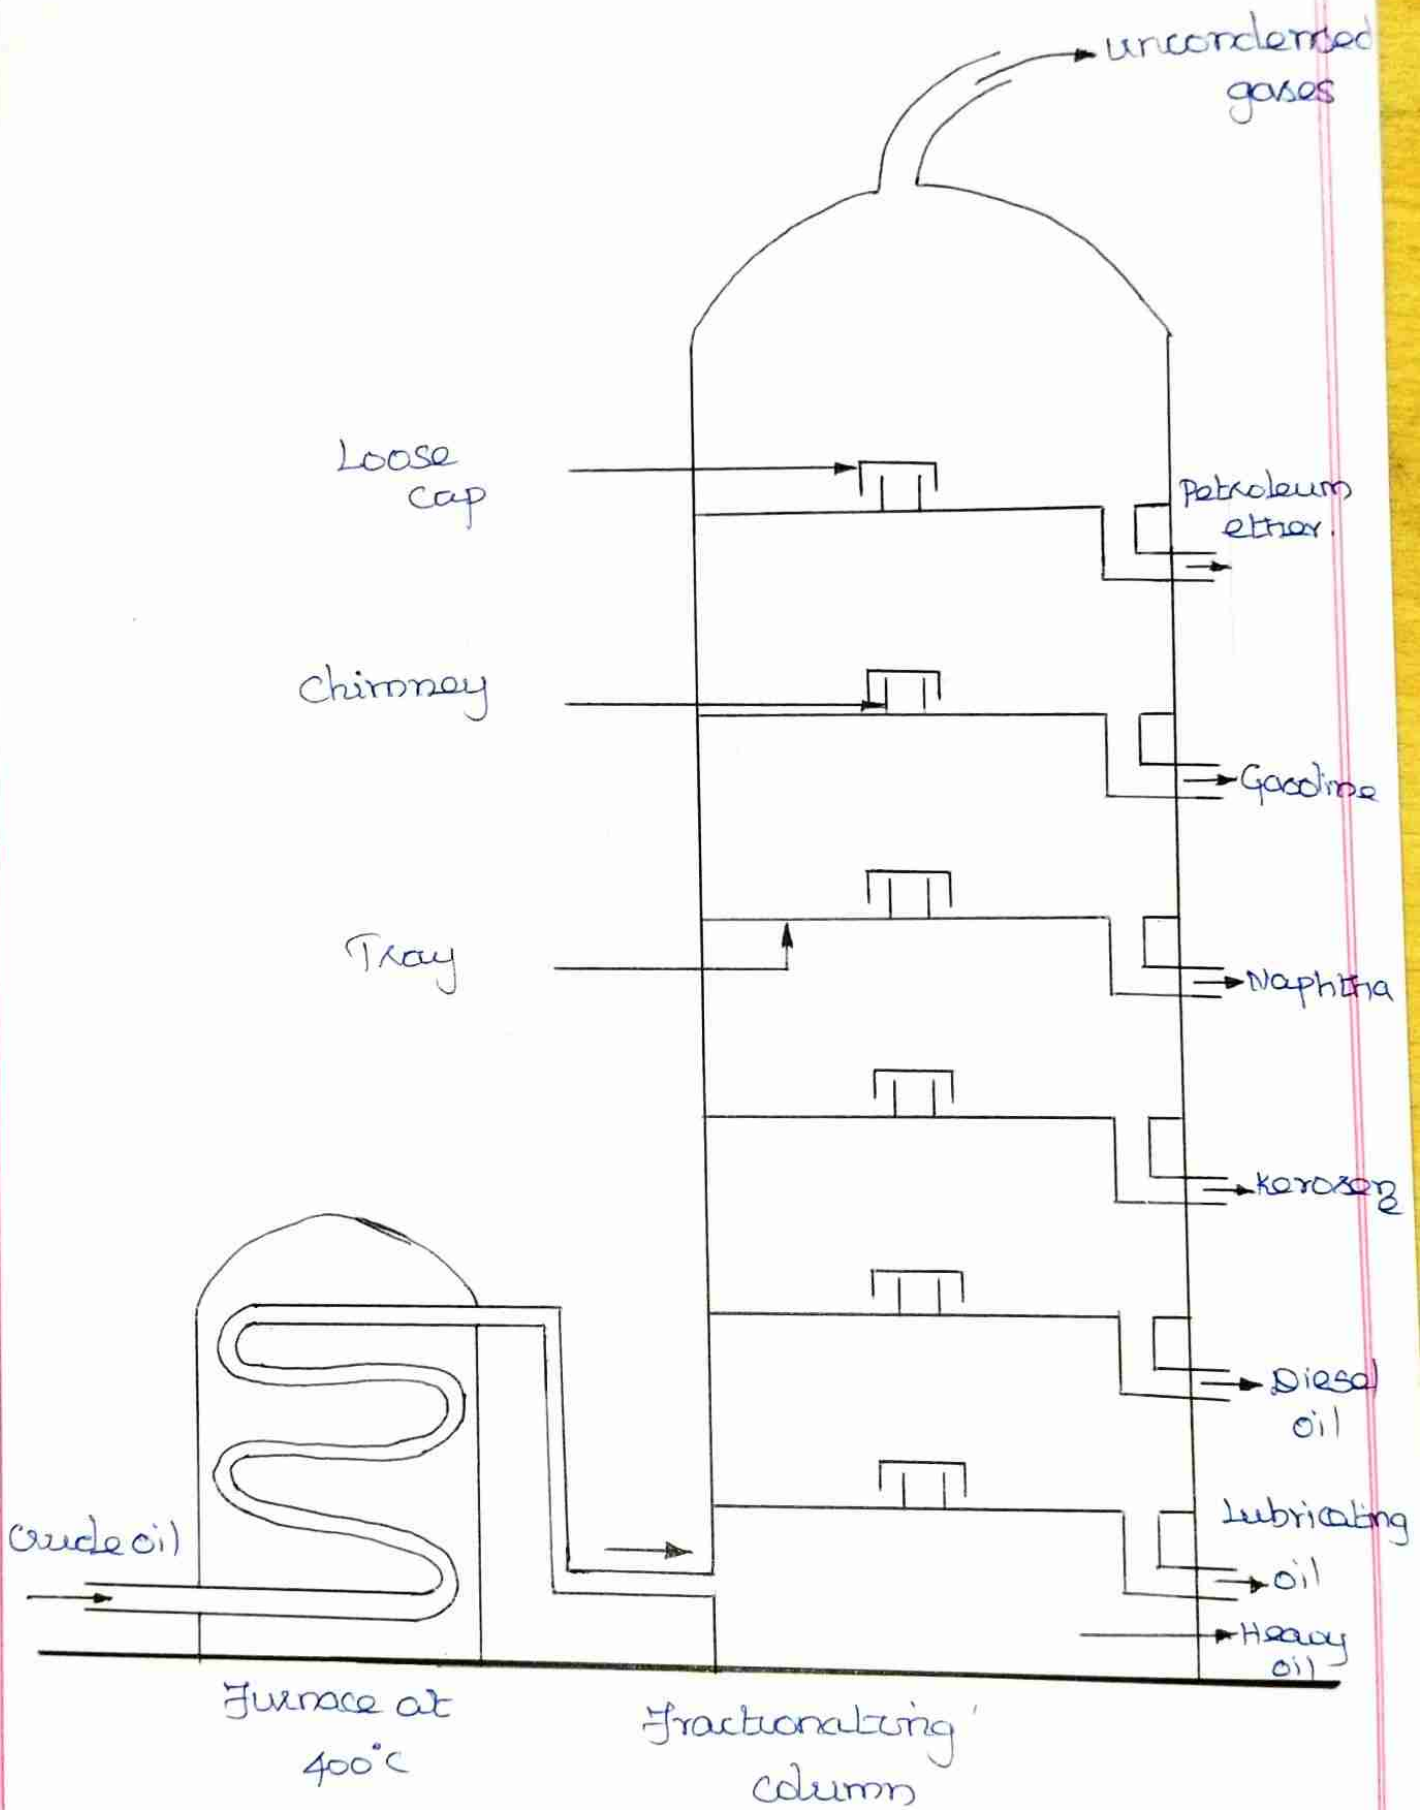 uncondensed
gases
Loose
cap
Petroleum
ether.
Chimney
Gasoline
Tray
Naphtha
Kerosene
Diesel
oil
Lubricating
oil
Heavy
oil
Crude oil
Furnace at
400°C
Fractionating
column